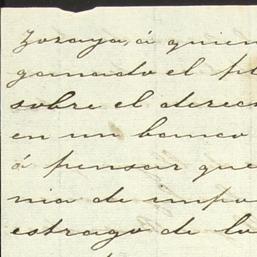 Zozaya, á quien
ganado el p
sobre el derec
en un banco
á pensar que
nia de impo
estrago de la